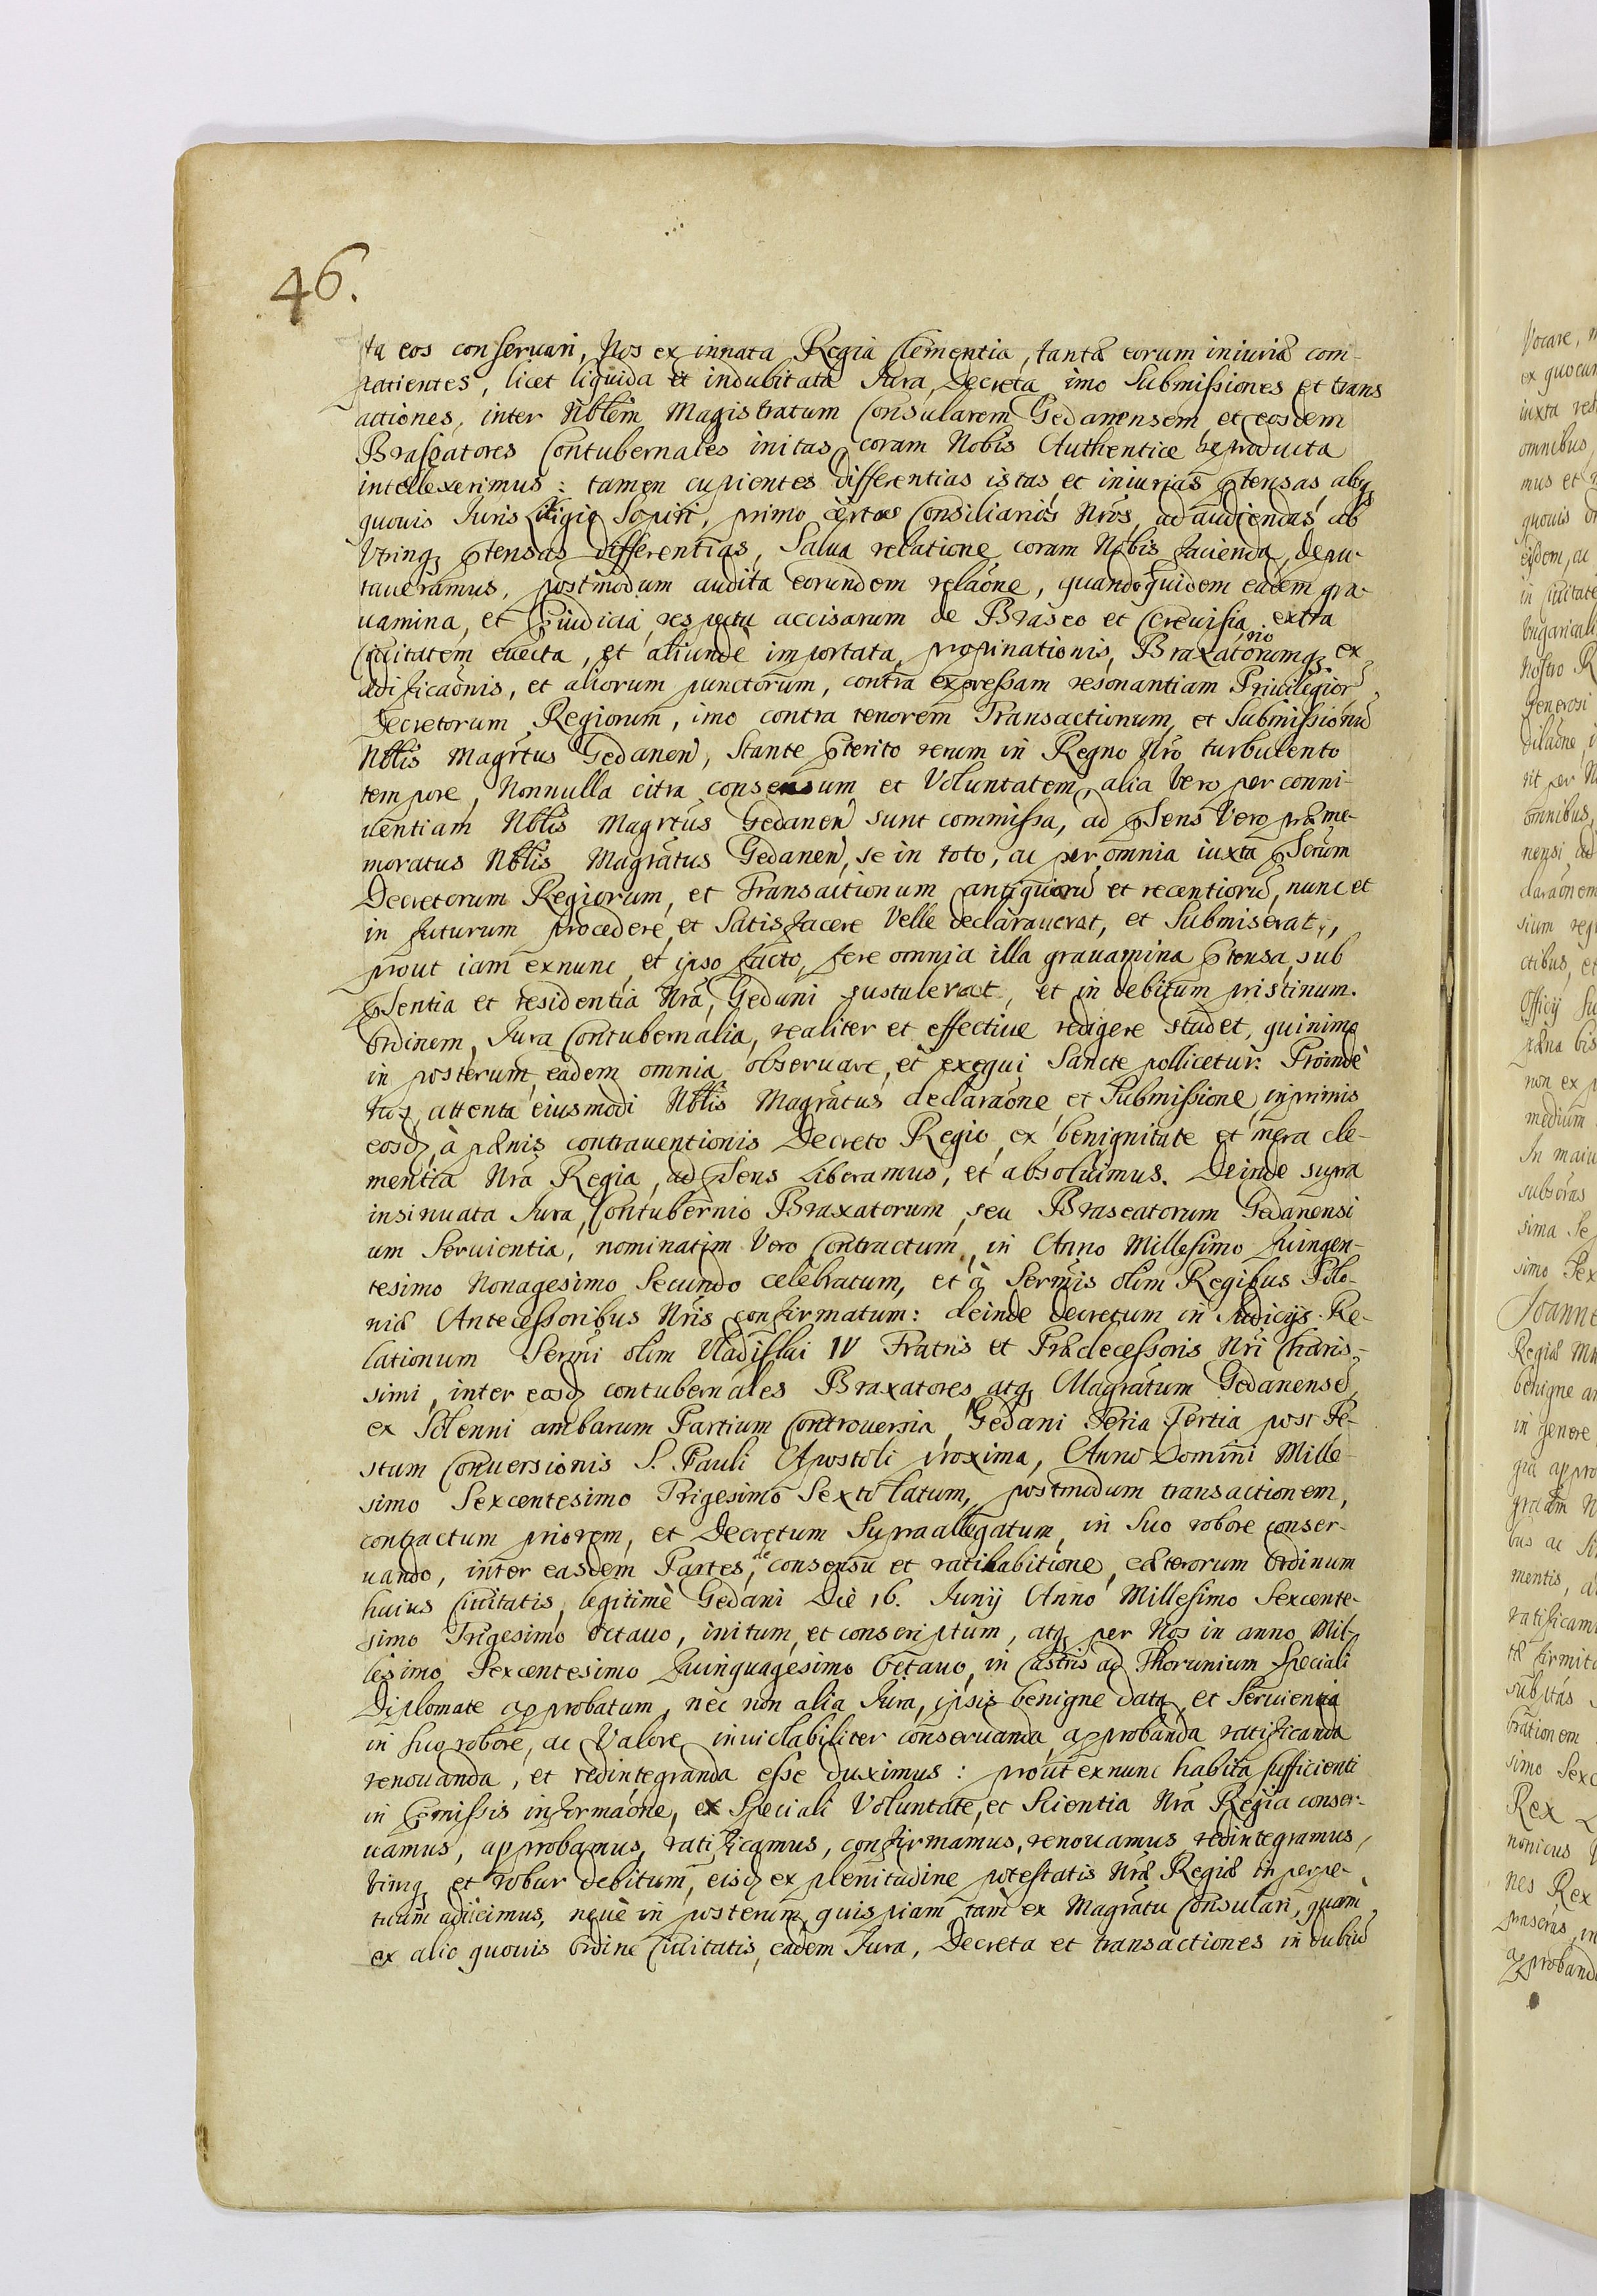 46.
ta eos conseruari, Nos ex innata Regia Clementia, tantæ eorum iniuriæ com-
patientes, licet liquida et indubitata Iura, Decreta, imo Submissiones et trans
actiones, inter Nblem Magistratum Consularem Gedanensem, et eosdem
Braseatores Contubernales initas, coram Nobis Authentice reproducta
intellexerimus: tamen cupientes differentias istas, et iniurias ꝓtensas, absq
quouis Iuris Litigio Sopiri, primo certos Consiliarios Nros, ad audiendas, ab
Vtrinq ꝓtensas differentias, Salua relatione coram Nobis facienda, depu-
taueramus, postmodum audita eorundem relaōne, quandoquidem eadem gra-
uamina, et ꝓiudicia, respectu accisarum de Braseo et Cereuisia extra
Ciuitatem euecta, et aliunde importata, propinationis, Braxatoriorumq ex
ædificaōnis, et aliorum punctorum, contra expressam resonantiam Priuilegiorū,
Decretorum Regiorum, imo contra tenorem Transactionum, et Submissionū
Nblis Magrtus Gedanen, Stante ꝓterito rerum in Regno Nro turbulento
tempore, Nonnulla citra consensum et Voluntatem, alia Vero per conni-
uentiam Nblis Magrtus Gedanen sunt commissa, ad ꝓsens Vero præme-
moratus Nblis Magratus Gedanen, se in toto, ac per omnia iuxta ꝓscrum
Decretorum Regiorum, et Transactionum antiquiorū et recentiorū, nunc et
in futurum procedere, et Satisfacere Velle declarauerat, et Submiserat,
prout iam exnunc, et ipso facto, fere omnia illa grauamina ꝓtensa, sub
ꝓsentia et residentia Nra, Gedani sustulerat, et in debitum pristinum.
Ordinem, Iura Contubernalia, realiter et effectiue redigere studet, quinimo
in posterum, eadem omnia obseruare, et exequi Sancte pollicetur: Proinde
Nos, attenta eiusmodi Nblis Magratus declaraōne et Submissione, inprimis
eosd, à pænis contrauentionis Decreto Regio, ex benignitate et mera cle-
mentia Nra Regia, ad ꝓsens Liberamus, et absoluimus. Deinde supra
insinuata Iura, Contubernio Braxatorum, seu Braseatorum Gedanensi
um Seruientia, nominatim Vero Contractum, in Anno Millesimo Quingen-
tesimo Nonagesimo Secundo celebratum, et à Sermis olim Regibus Polo-
niæ Antecessoribus Nris confirmatum: deinde decretum in Iudicijs Re-
lationum Sermi olim Vladislai IV Fratris et Prædecessoris Nri Charis-
simi, inter eosd contubernales Braxatores, atq Magratum Gedanensē,
ex Solenni ambarum Partium Controuersia, Gedani Feria Tertia post Fe-
stum Conuersionis S. Pauli Apostoli proxima, Anno Domini Mille-
simo Sexcentesimo Trigesimo Sexto latum, postmodum transactionem,
contractum priorem, et Decretum Supraallegatum, in Suo robore conser-
uando, inter easdem Partes, de consensu et ratihabitione, cæterorum Ordinum
huius Ciuitatis, legitimè Gedani Die 16. Iunij Anno Millesimo Sexcente-
simo Trigesimo Octauo, initum, et conscriptum, atq per Nos in anno Mil-
lesimo Sexcentesimo Quinquagesimo Octauo, in Castris ad Thorunium Speciali
Diplomate approbatum, nec non alia Iura, ipsis benigne data, et Seruientia
in suo robore, ac Valore, inuiolabiliter conseruanda, approbanda ratificanda
renouanda, et redintegranda esse duximus: prout exnunc habita sufficienti
in ꝓmissis informaōne, ex Speciali Voluntate, et Scientia Nra Regia conser-
uamus, approbamus, ratificamus, confirmamus, renouamus redintegramus,
Vimq et robur debitum, eisd ex plenitudine potestatis Nræ Regiæ in perpe-
tuum adijcimus, neuè in posterum, quispiam tàm ex Magratu Consulari, quàm
ex alio quouis Ordine Ciuitatis, eadem Iura, Decreta et transactiones in dubiū